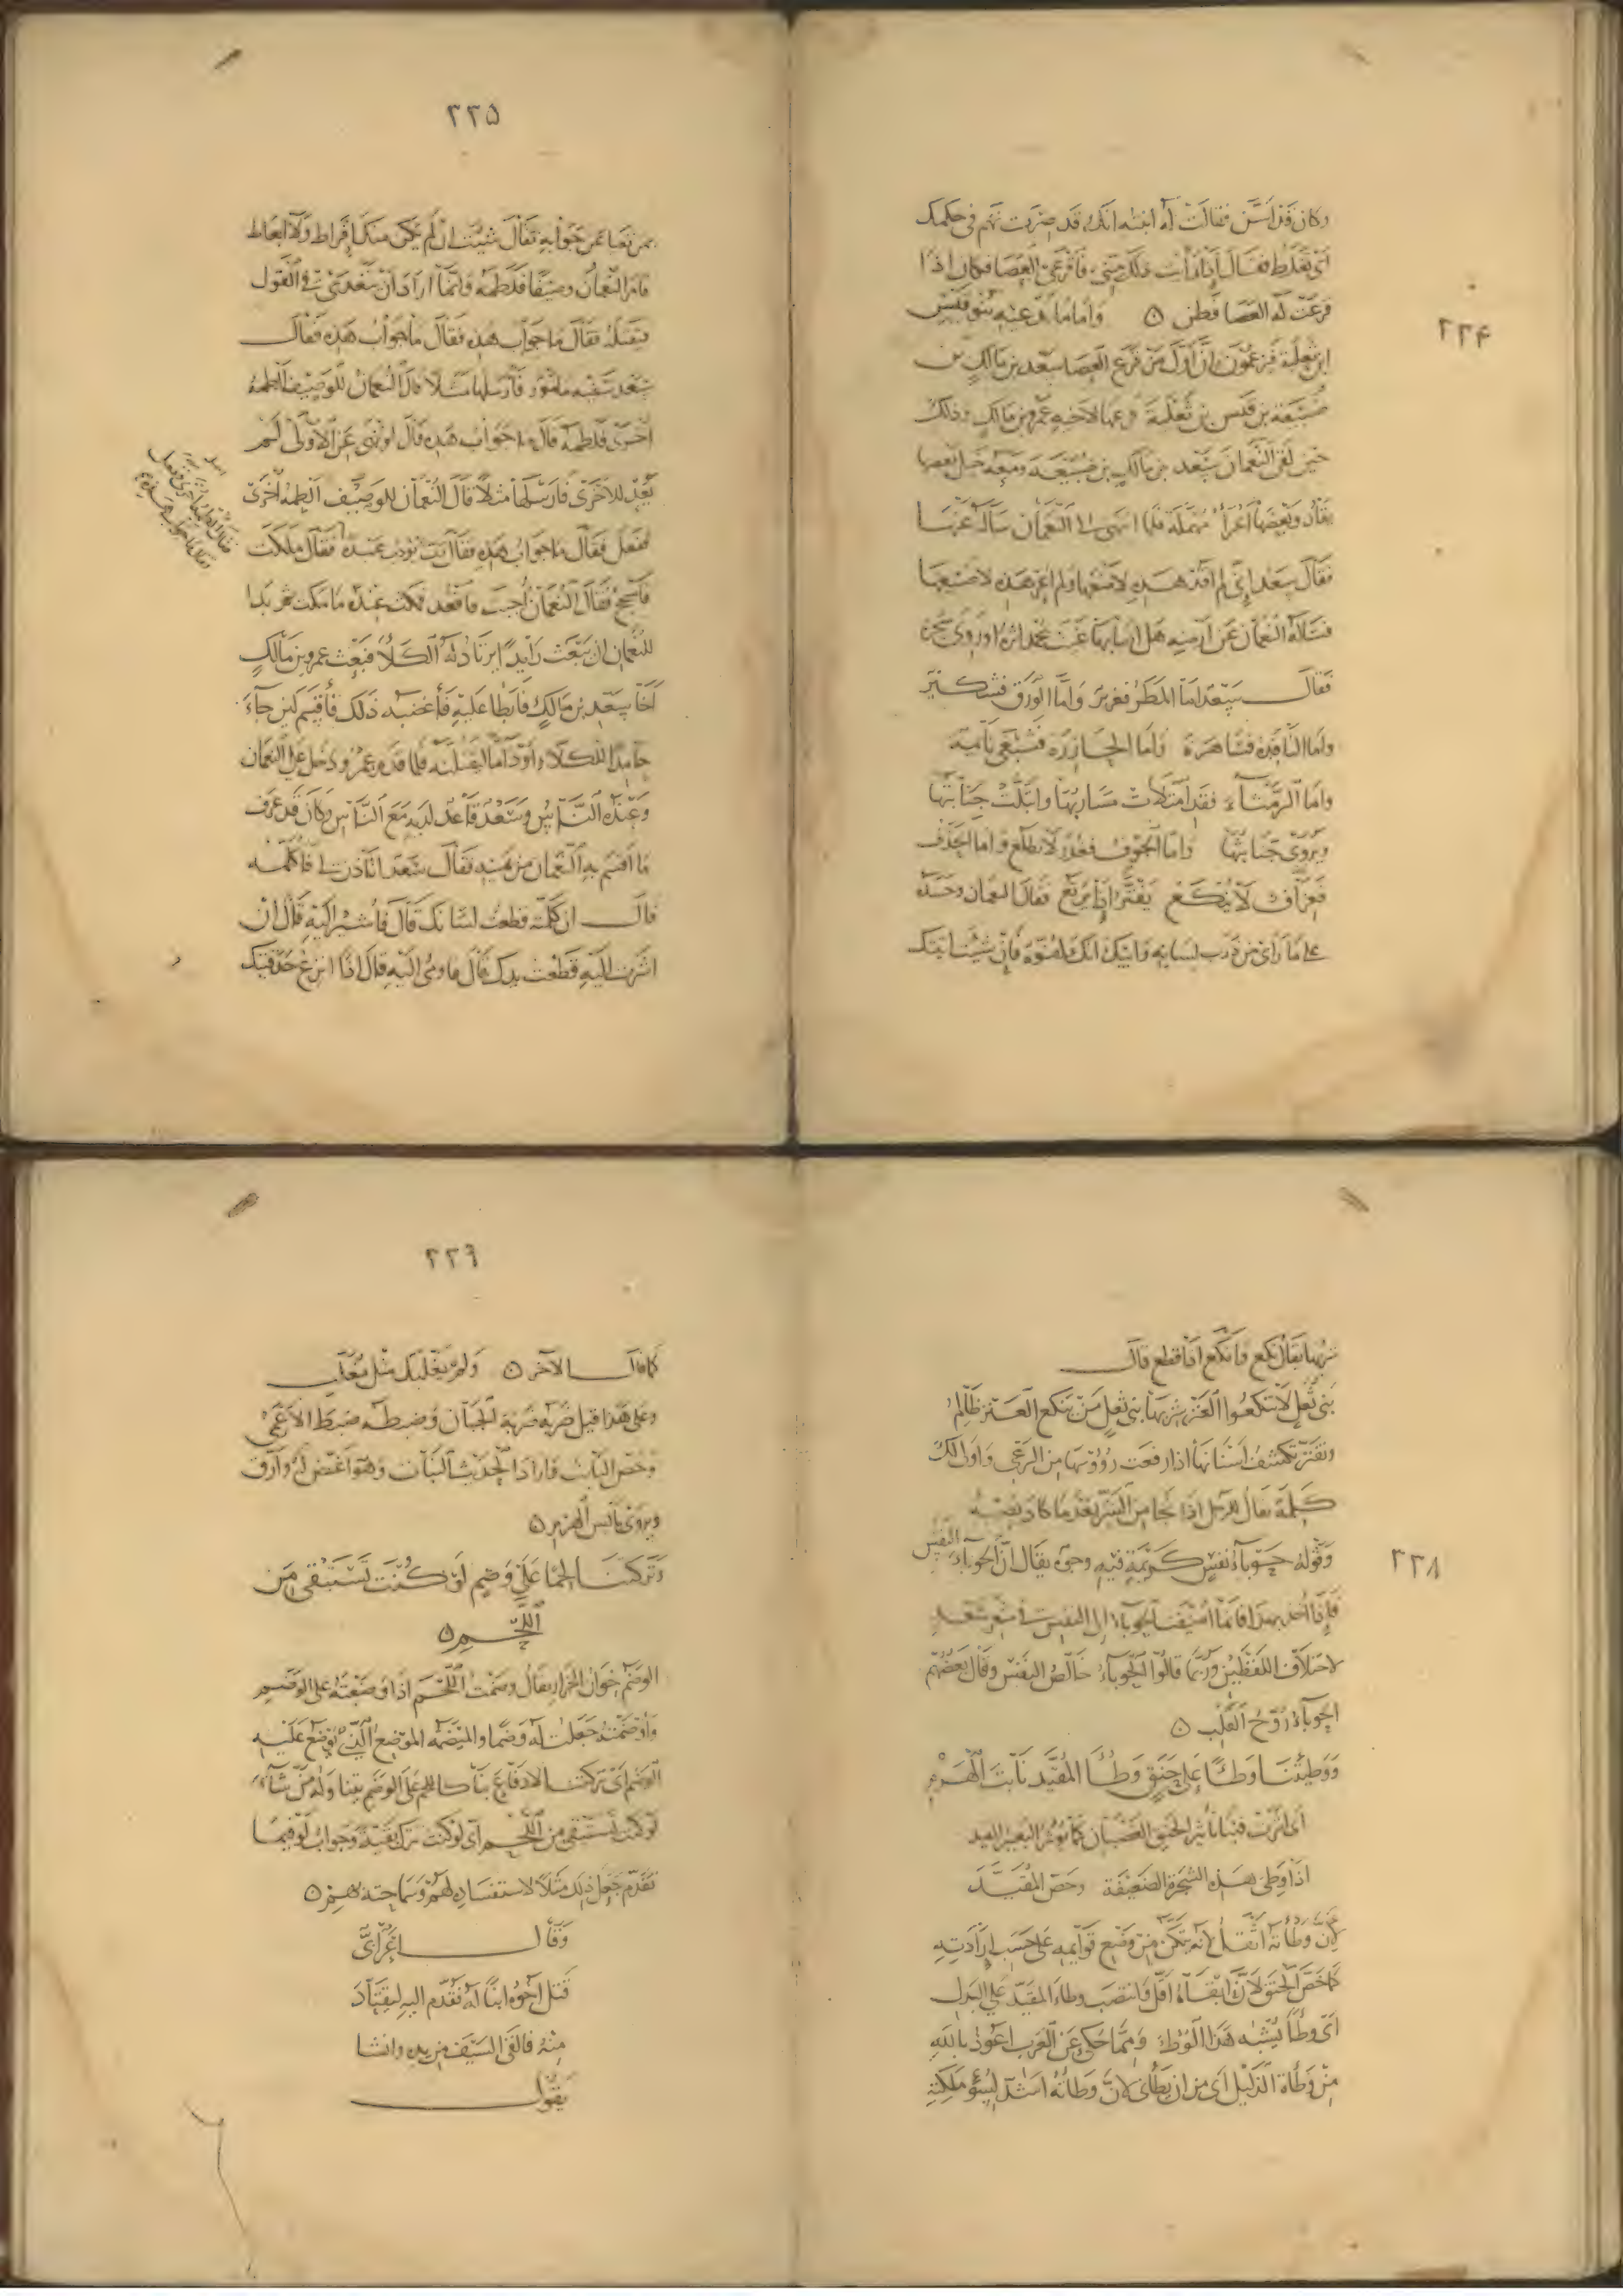 ٢٣٤
وكان قد اسن فقالت له ابنته انك قد صرت تهم في حكمك
اي تغلط فقال اذا رأيت ذلك مني فاقرعي العصا فكان اذا
قرعت له العصا فطن ٥ واما ما تدعيه بنو قيس
ابن ثعلبة فيزعمون ان اول من قرع العصا سعد بن مالك بن
ضبيعة بن قيس بن ثعلبة قرعها لاخيه عمرو بن مالك وذلك
حين لقي النعمان سعد بن مالك بن ضبيعة ومعه خيل بعضها
يقاد وبعضها اعراء مهملة فلما انتهى الى النعمان سأله عنها
فقال سعد اني لم اقد هذه لامنعها ولم اعر هذه لاضيعها
فسأله النعمان عن ارضه هل اصابها غيث يحمد اثره او روى شجره
فقال سعد اما المطر فغزير واما الورق فشكير
واما النافدة فساهرة واما الحازرة فشبعى نائمة
واما الرمثاء فقد امتلات مساربها وابتلت جنابتها
ويروى جنابثها واما الجوف فغدر لا تطلع واما الحذف
فعراف لا ينكع يفتر اذا يرتع فقال النعمان وحسده
على ما راى من ذرب لسانه وابيك انك لمفوه فان شئت اتيتك
٢٣٥
بمن تعيا عن جوابه فقال شئت ان لم يكن منك افراط ولا ابعاط
فامر النعمان وصيفا فلطمه وانما اراد ان يتعدى في القول
فيقتله فقال ما جواب هذه فقال ما جواب هذه فقال
سعد سفيه مامور فارسلها مثلا قال النعمان للوصيف الطمه
اخرى فلطمه قال ما جواب هذه قال لو نهي عن الاولى لم
يعد للاخرى فارسلها مثلا قال النعمان للوصيف الطمه اخرى
ففعل فقال ما جواب هذه فقال رب يؤدب عبده فقال ملكت
فاسجح فقال النعمان اجبت فاقعد فمكث عنده ما مكث ثم بدا
للنعمان ان يبعث رايدا يرتاد له الكلا فبعث عمرو بن مالك
اخا سعد بن مالك فابطا عليه فاغضبه ذلك فاقسم لئن جاء
حامدا للكلاء او ذاما ليقتلنه فلما قدم عمرو دخل على النعمان
وعنده الناس وسعد قاعد لديه مع الناس وكان قد عرف
ما اقسم به النعمان من يمينه فقال سعد اتأذن لي فاكلمه
قال ان كلمته قطعت لسانك قال فاشير اليه قال ان
اشرت اليه قطعت يدك قال فاومى اليه قال اذا انزع حدقتيك
٢٣٨
شربها يقال نكع وانكع اذا قطع قال
بني ثعل لا تنكعوا العنز شربها بني ثعل من ينكع العنز ظالم
وتفتر تكشف اسنانها اذا رفعت رؤوسها من الرعي واولى لك
كلمة تقال للرجل اذا نجا من الشر بعد ما كاد يصيبه
وقوله حوباء نفس كريمة فيه وحى يقال ان الحوباء النفس
فاذا اخذ بهذا فانما اضيفت الحوباء الى النفس في شعر سعد
لاختلاف اللفظين وربما قالوا الحوباء خالص النفس وقال بعضهم
الحوباء روح القلب ٥
ووطئتنا وطئا على حنق وطأ المقيد نابت الهرم
اي اثرت فينا تاثير الحنق الغضبان كما يؤثر البعير المقيد
اذا وطئ هذه الشجرة الضعيفة وخص المقيد
لان وطأته اثقل لانه يتمكن من وضع قوائمه على حسب ارادته
كما خص الحنق لان ابقاءه اقل فانتصب وطأ المقيد على البدل
اي وطأ يشبه هذا الوطأ ومما حكي عن العرب اعوذ بالله
من وطأة الذليل اي من ان يطأني لان وطأته اشد لسوء ملكته
٢٣٩
كما قال الآخر ٥ ولم يغلبك مثل مغلب
وعلى هذا قيل ضربه ضربة الجبان وضبطه ضبط الاعمى
وخص النابت فاراد الحديث النبات وهو اغض له وارق
ويروى يابس الهرم ٥
وتركتنا لحما على وضم لو كنت تستبقي من
اللحم ٥
الوضم خوان الجزار يقال وضمت اللحم اذا وضعته على الوضم
واوضمته جعلت له وضما والميضمة الموضع الذي يوضع عليه
الوضم اي تركتنا لا دفاع بنا كاللحم على الوضم يتناوله من شاء
لو كنت تستبقي من اللحم اي لو كنت تترك بقية وجواب لو فيما
تقدم جعل ذلك مثلا لاستفساده لهم وسماحته بهم ٥
وقال اعرابي
قتل اخوه ابنا له فقدم اليه ليقتاد
منه فالقى السيف من يده وانشا
يقول